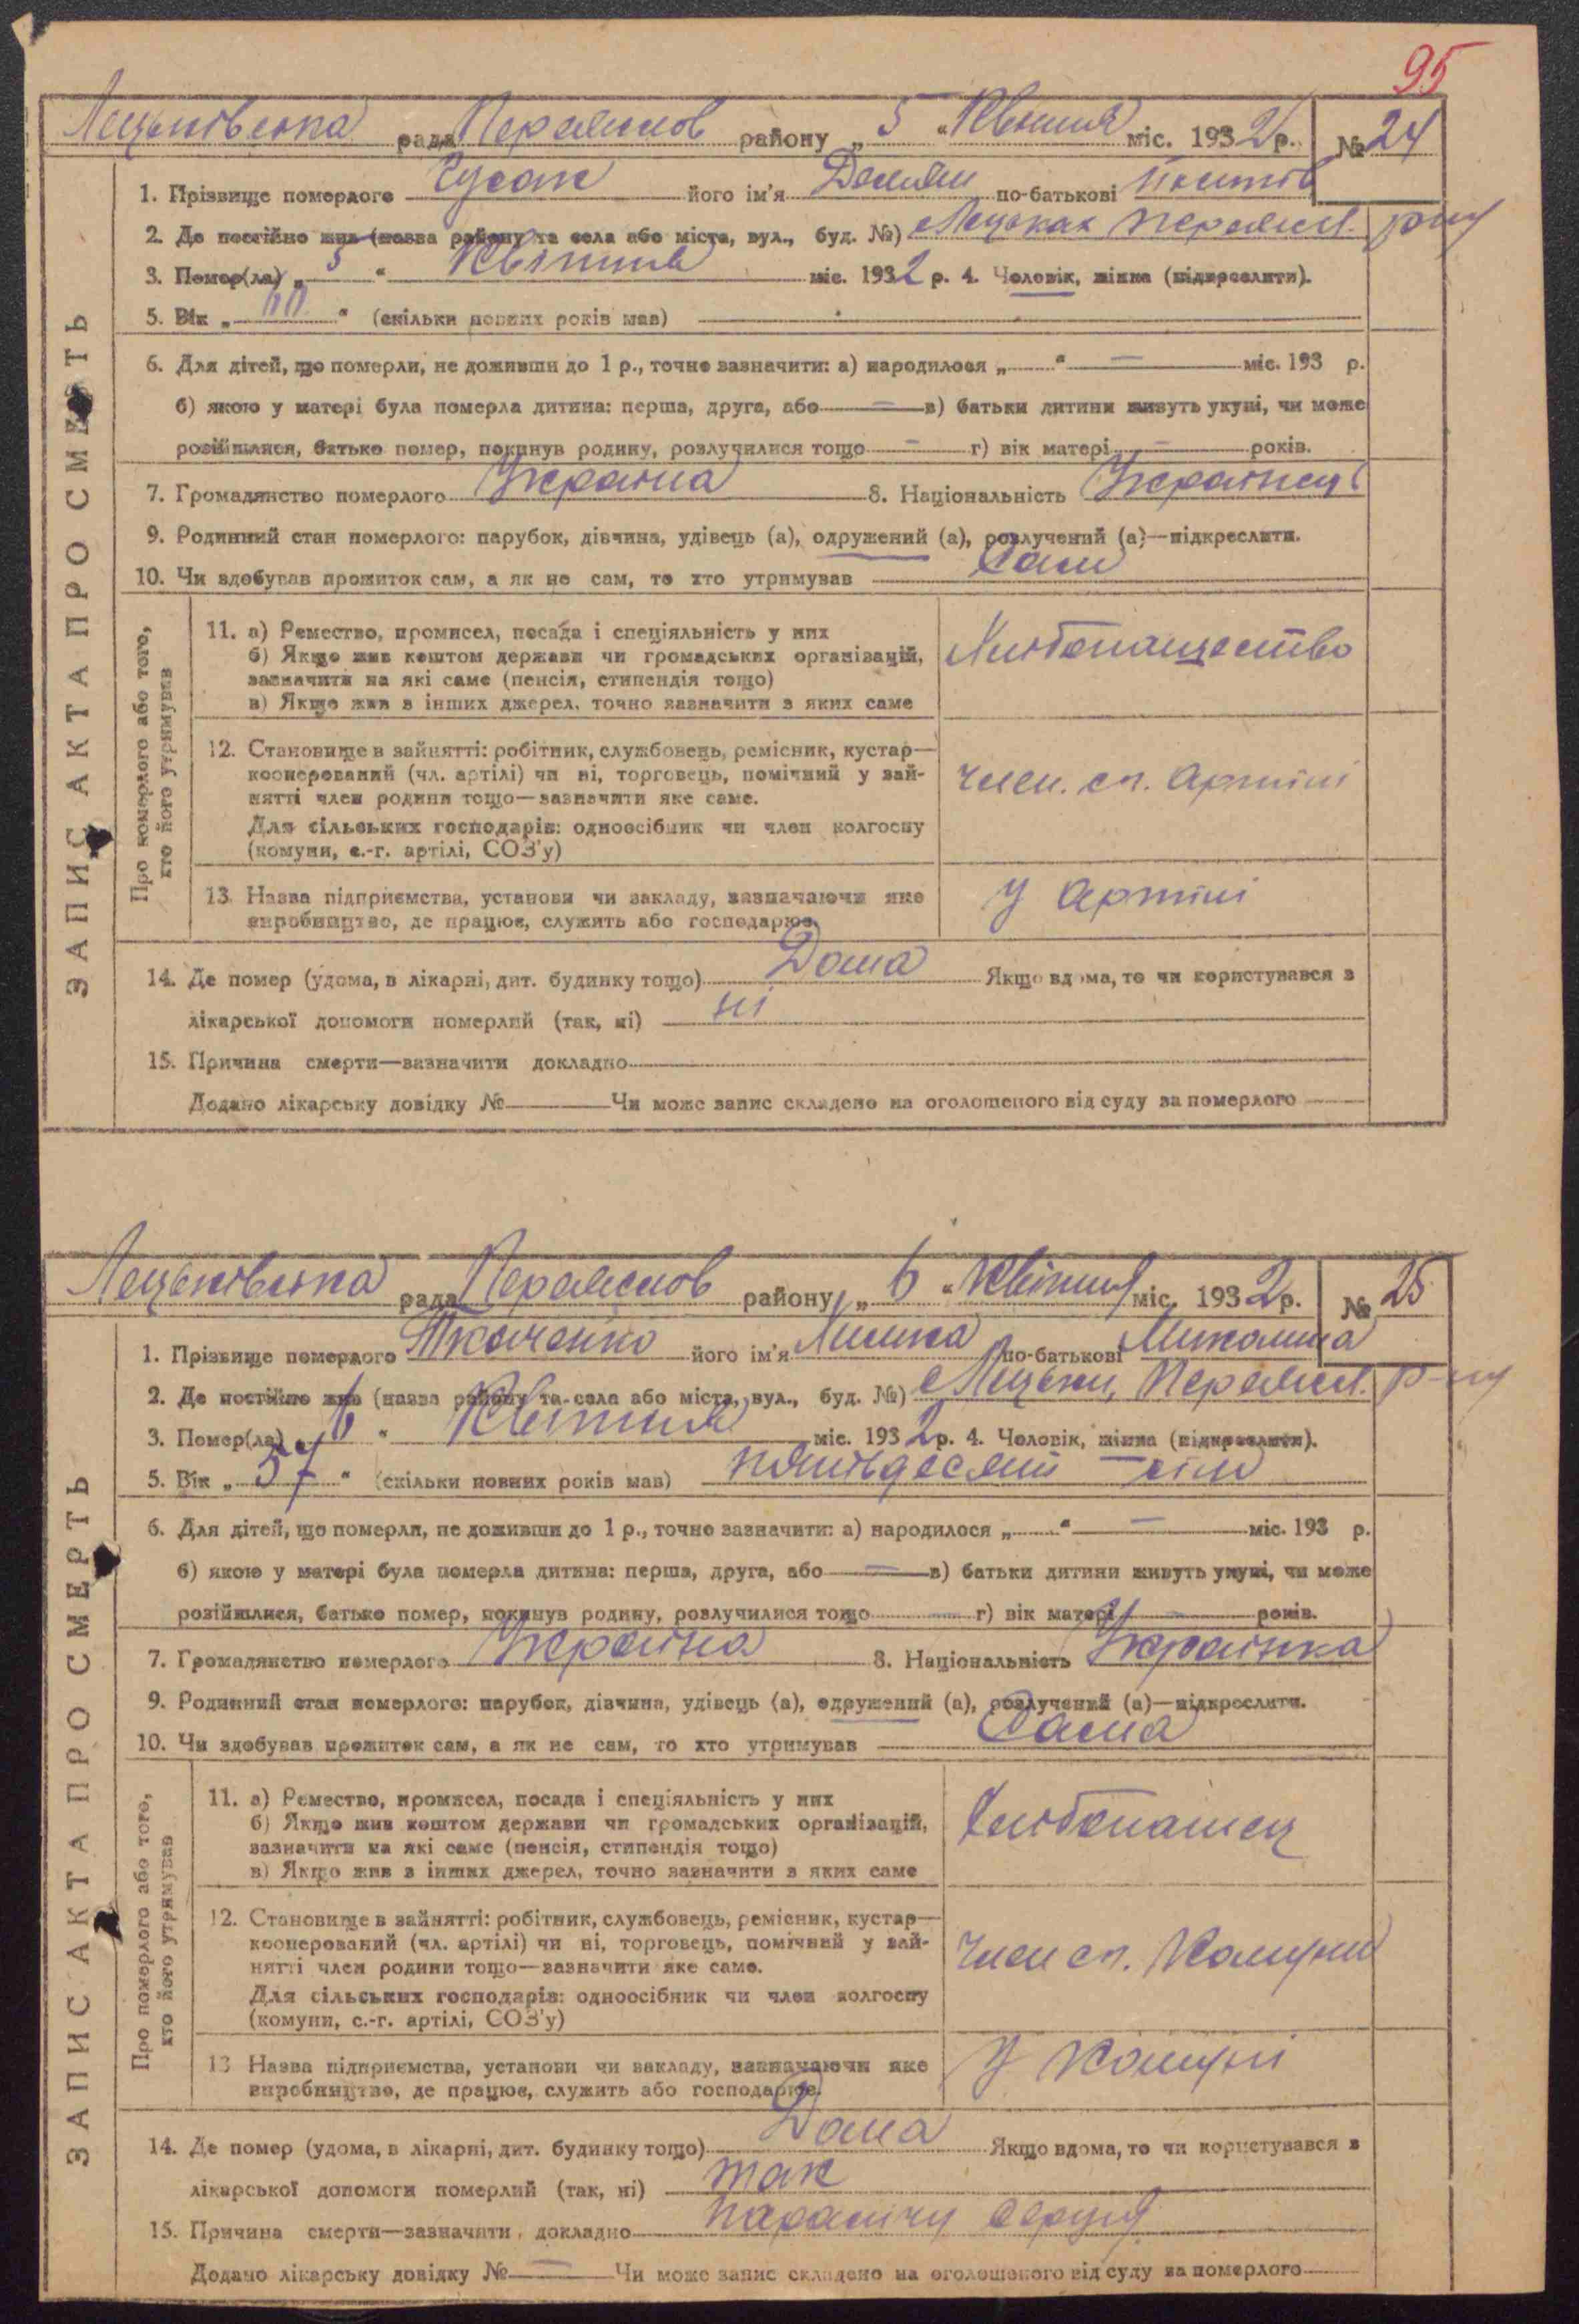 95
рада Переяслов району „ 5 “ Квітня міс. 1932 р. № 24
1. Прізвище померлого Гусак його ім'я Демян по-батькові
2. Де постійно жив (назва району та села або міста, вул., буд. №) Переясл. р-ну
3. Помер(ла) „ 5 “ Квітня міс. 1932 р. 4. Чоловік, жінка (підкреслити).
5. Вік „ “ (скільки повних років мав)
6. Для дітей, що померли, не доживши до 1 р., точно зазначити: а) народилося „ “ — міс. 193 р.
б) якою у матері була померла дитина: перша, друга, або — в) батьки дитини живуть укупі, чи може
розійшлися, батько помер, покинув родину, розлучилися тощо — г) вік матері — років.
7. Громадянство померлого Україна 8. Національність Українец
9. Родинний стан померлого: парубок, дівчина, удівець (а), одружений (а), розлучений (а)—підкреслити.
10. Чи здобував прожиток сам, а як не сам, то хто утримував Сам
ЗАПИС АКТА ПРО СМЕРТЬ
Про померлого або того, хто його утримував
11. а) Ремество, промисел, посада і спеціяльність у них
б) Якщо жив коштом держави чи громадських організацій,
зазначити на які саме (пенсія, стипендія тощо)
в) Якщо жив з інших джерел, точно зазначити з яких саме
Хлібопашество
12. Становище в зайнятті: робітник, службовець, ремісник, кустар—
кооперований (чл. артілі) чи ні, торговець, помічний у зай-
нятті член родини тощо—зазначити яке саме.
Для сільських господарів: одноосібник чи член колгоспу
(комуни, с.-г. артілі, СОЗ'у)
Член. сг. Артілі
13. Назва підприємства, установи чи закладу, зазначаючи яке
виробництво, де працює, служить або господарює.
У Артілі
14. Де помер (удома, в лікарні, дит. будинку тощо) Дома Якщо вдома, то чи користувався з
лікарської допомоги померлий (так, ні) ні
15. Причина смерти—зазначити докладно
Додано лікарську довідку № Чи може запис складено на оголошеного від суду за померлого
рада Переяслов району „ 6 “ Квітня міс. 1932 р. № 25
1. Прізвище померлого Ткаченко його ім'я по-батькові
2. Де постійно жив (назва району та села або міста, вул., буд. №) Переясл. р-ну
3. Помер(ла) „ 6 “ Квітня міс. 1932 р. 4. Чоловік, жінка (підкреслити).
5. Вік „ 57 “ (скільки повних років мав) пятьдесят сім
6. Для дітей, що померли, не доживши до 1 р., точно зазначити: а) народилося „ “ — міс. 193 р.
б) якою у матері була померла дитина: перша, друга, або — в) батьки дитини живуть укупі, чи може
розійшлися, батько помер, покинув родину, розлучилися тощо — г) вік матері — років.
7. Громадянство померлого Україна 8. Національність Українка
9. Родинний стан померлого: парубок, дівчина, удівець (а), одружений (а), розлучений (а)—підкреслити.
10. Чи здобував прожиток сам, а як не сам, то хто утримував Сама
ЗАПИС АКТА ПРО СМЕРТЬ
Про померлого або того, хто його утримував
11. а) Ремество, промисел, посада і спеціяльність у них
б) Якщо жив коштом держави чи громадських організацій,
зазначити на які саме (пенсія, стипендія тощо)
в) Якщо жив з інших джерел, точно зазначити з яких саме
Хлібопашец
12. Становище в зайнятті: робітник, службовець, ремісник, кустар—
кооперований (чл. артілі) чи ні, торговець, помічний у зай-
нятті член родини тощо—зазначити яке саме.
Для сільських господарів: одноосібник чи член колгоспу
(комуни, с.-г. артілі, СОЗ'у)
Член сг. Комуни
13 Назва підприємства, установи чи закладу, зазначаючи яке
виробництво, де працює, служить або господарює.
У Комуні
14. Де помер (удома, в лікарні, дит. будинку тощо) Дома Якщо вдома, то чи користувався з
лікарської допомоги померлий (так, ні) так
15. Причина смерти—зазначити докладно паралічу серця
Додано лікарську довідку № — Чи може запис складено на оголошеного від суду за померлого